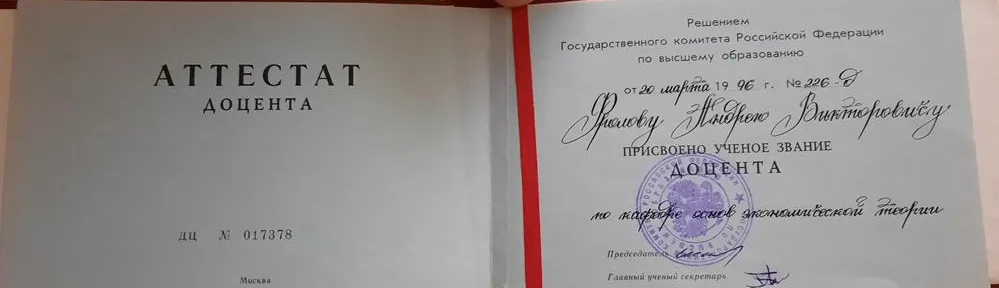 АТТЕСТАТ
ДОЦЕНТА
ДЦ № 017378
Москва
Решением
Государственного комитета Российской Федерации
по высшему образованию
от 20 марта 1996 г. № 226-Д
Фролову Андрею Викторовичу
ПРИСВОЕНО УЧЕНОЕ ЗВАНИЕ
ДОЦЕНТА
по кафедре основ экономической теории
Председатель
Главный ученый секретарь